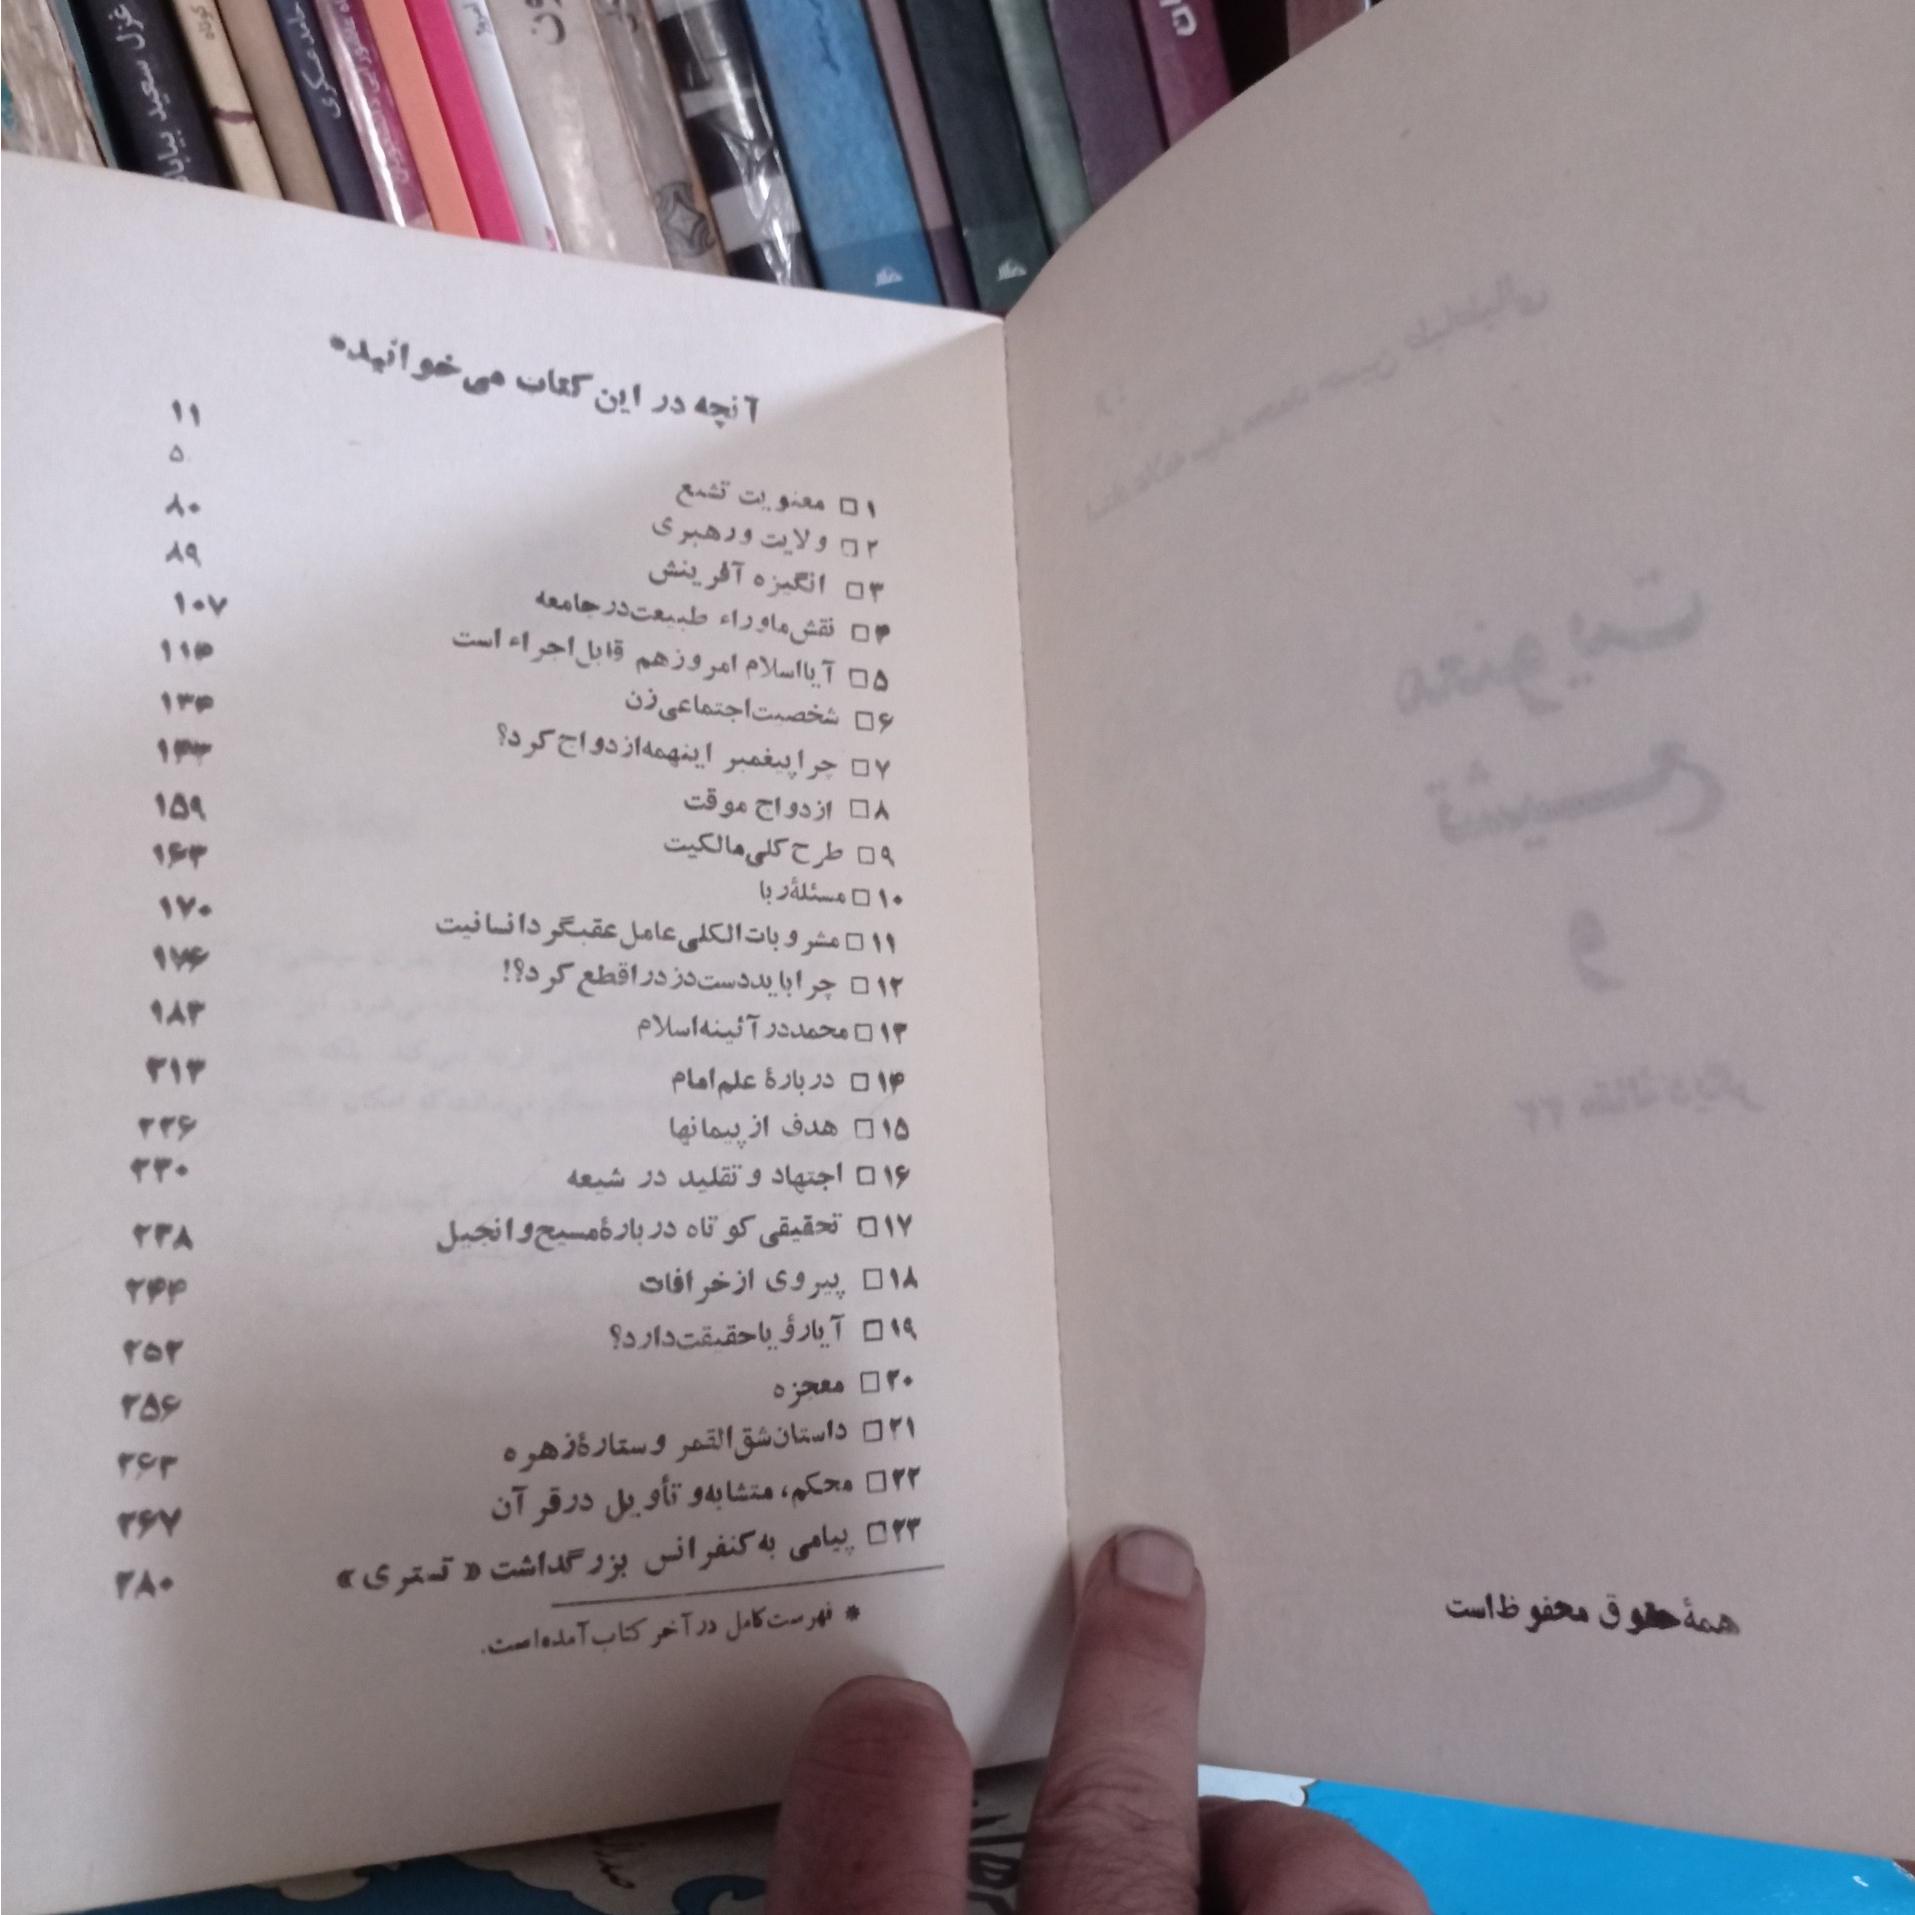 همهٔ حقوق محفوظ است
آنچه در این کتاب می‌خوانید*
۱ □ معنویت تشیع ۱۱
۲ □ ولایت و رهبری ۵۰
۳ □ انگیزه آفرینش ۸۰
۴ □ نقش ماوراء طبیعت در جامعه ۸۹
۵ □ آیا اسلام امروز هم قابل اجراء است ۱۰۷
۶ □ شخصیت اجتماعی زن ۱۱۴
۷ □ چرا پیغمبر اینهمه ازدواج کرد؟ ۱۳۴
۸ □ ازدواج موقت ۱۴۳
۹ □ طرح کلی مالکیت ۱۵۹
۱۰ □ مسئلهٔ ربا ۱۶۳
۱۱ □ مشروبات الکلی عامل عقبگرد انسانیت ۱۷۰
۱۲ □ چرا باید دست دزد را قطع کرد؟! ۱۷۶
۱۳ □ محمد در آئینه اسلام ۱۸۳
۱۴ □ دربارهٔ علم امام ۲۱۳
۱۵ □ هدف از پیمانها ۲۲۶
۱۶ □ اجتهاد و تقلید در شیعه ۲۳۰
۱۷ □ تحقیقی کوتاه دربارهٔ مسیح و انجیل ۲۳۸
۱۸ □ پیروی از خرافات ۲۴۴
۱۹ □ آیا رؤیا حقیقت دارد؟ ۲۵۲
۲۰ □ معجزه ۲۵۶
۲۱ □ داستان شق القمر و ستارهٔ زهره ۲۶۳
۲۲ □ محکم، متشابه و تأویل در قرآن ۲۶۷
۲۳ □ پیامی به کنفرانس بزرگداشت «تستری» ۲۸۰
* فهرست کامل در آخر کتاب آمده است.